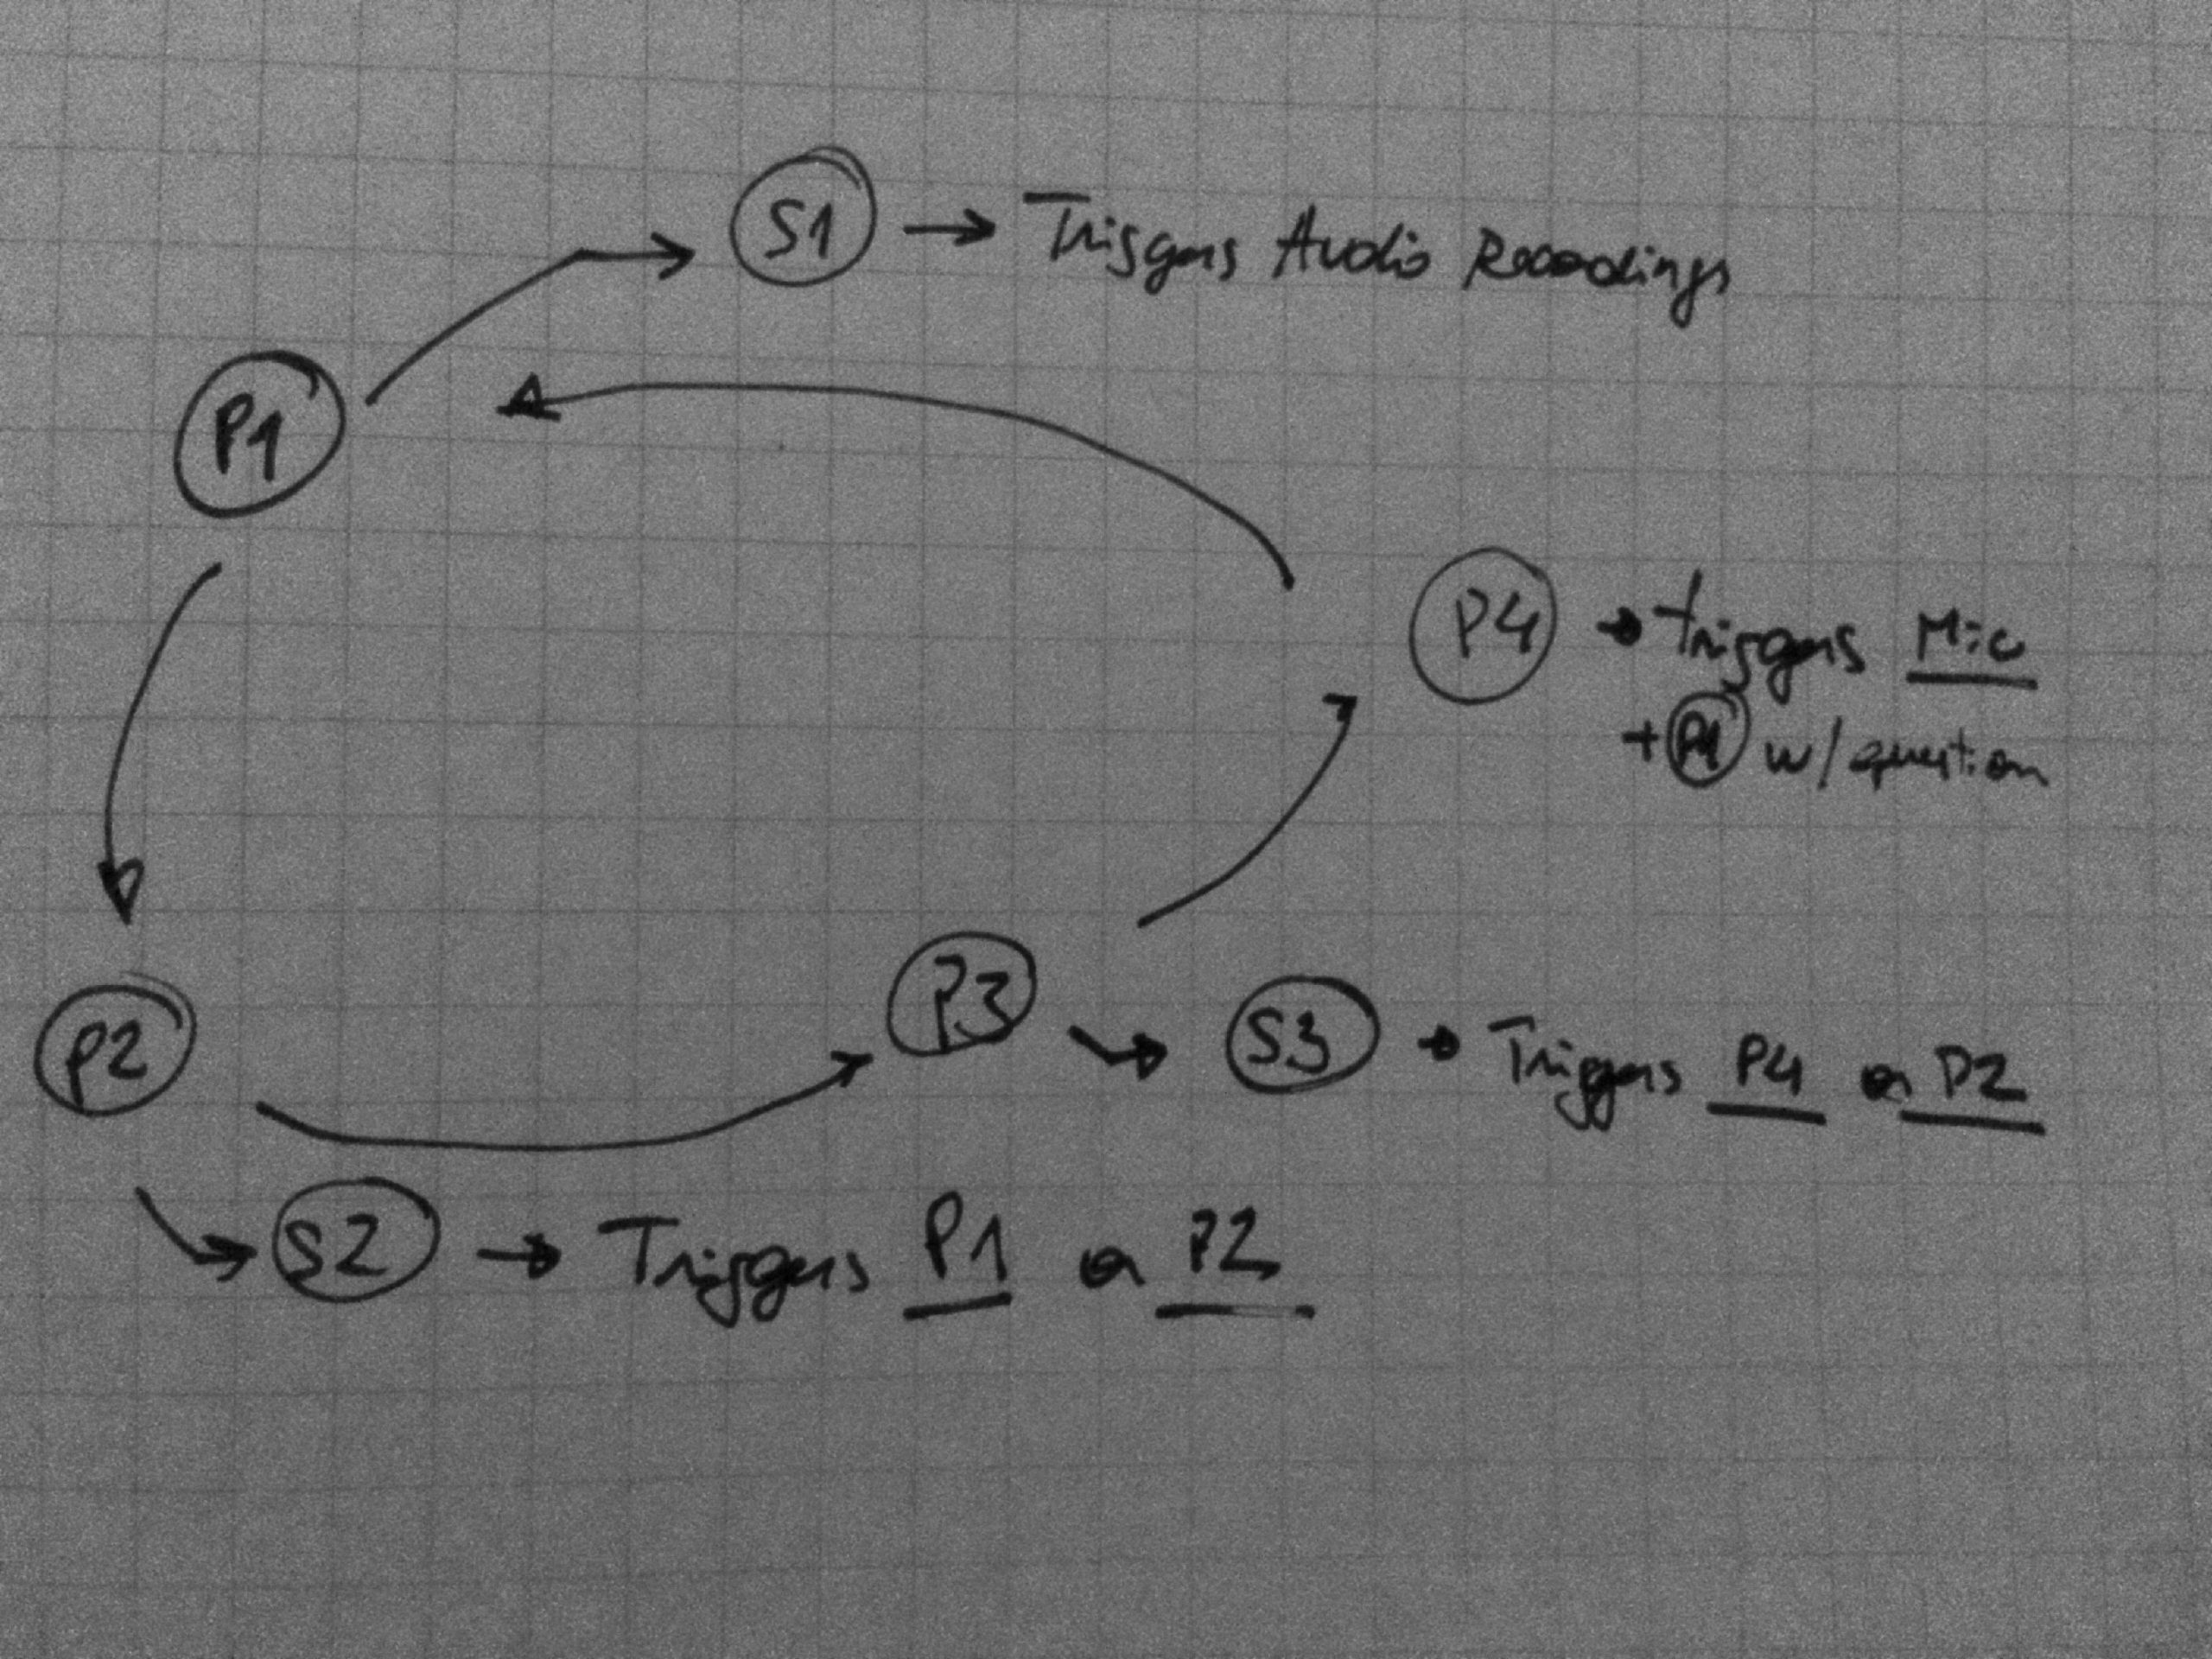 S1 → Triggers Audio Recordings
P1
P4 → triggers Mic
+ P1 w/ question
P3
S3 → Triggers P4 or P2
P2
S2 → Triggers P1 or P2